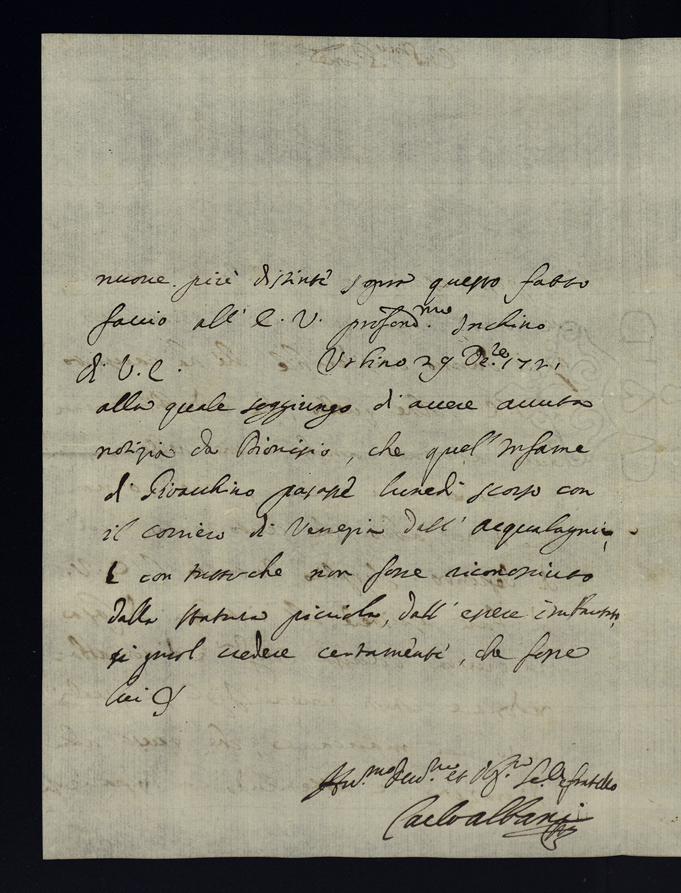 nuove più distinte sopra questo fatto
faccio all' E. V. profond.mo Inchino
di V. E. Urbino 29 Xb.re 1721
alla quale soggiungo di avere avuta
notizia da Dionisio, che quell' Infame
di Gioacchino passasse lunedì scorso con
il corriero di Venezia dall' Acqualagnia,
E con tutto che non fosse riconosciuto
dalla statura picciola, dall' essere
si puol credere certamente, che fosse
lui
fratello
Carlo Albani